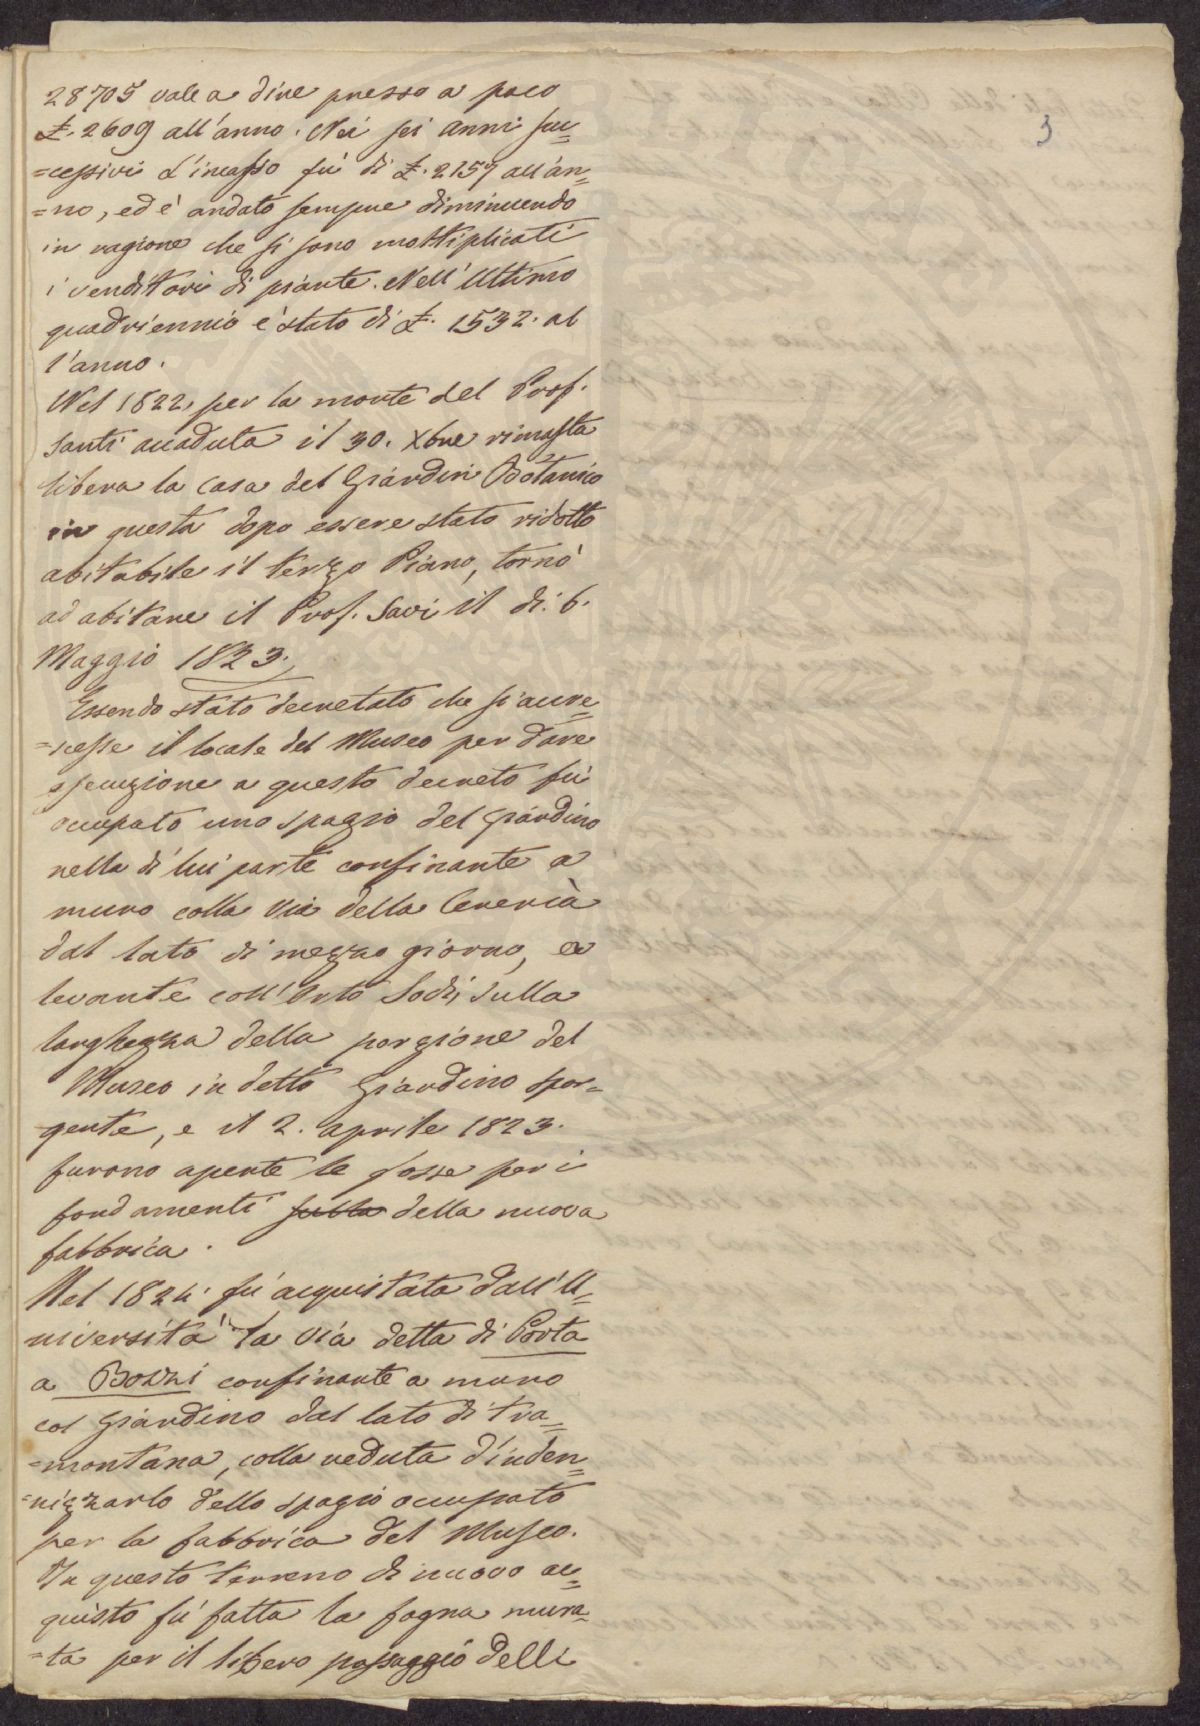 3
28705 vale a dire presso a poco
£. 2609 all'anno. Nei sei anni suc=
=cessivi l'incasso fù di £. 2157 all'an=
=no, ed è andato sempre diminuendo
in ragione che si sono moltiplicati
i venditori di piante. Nell'Ultimo
quadriennio è stato di £. 1532. al
l'anno.
Nel 1822, per la morte del Prof.
Santi accaduta il 30. Xbre rimasta
libera la casa del Giardin Botanico
in questa dopo essere stato ridotto
abitabile il terzo Piano, tornò
ad abitare il Prof. Savi il dì. 6.
Maggio 1823.
Essendo stato decretato che si accre=
=scesse il locale del Museo per dare
esecuzione a questo decreto fù
occupato uno spazio del Giardino
nella di lui parte confinante a
muro colla Via della Cereria
dal lato di mezzo giorno, e a
levante coll'Orto Sodi, sulla
larghezza della porzione del
Museo in detto Giardino spor=
gente, e il 2. aprile 1823.
furono aperte le fosse per i
fondamenti sulla della nuova
fabbrica.
Nel 1824. fù acquistata dall'U=
niversità la via detta di Porta
a Bozzi confinante a muro
col Giardino dal lato di tra=
=montana, colla veduta d'inden=
=nizzarlo dello spazio occupato
per la fabbrica del Museo.
In questo terreno di nuovo ac=
quisto fù fatta la fogna mura=
=ta per il libero passaggio delli